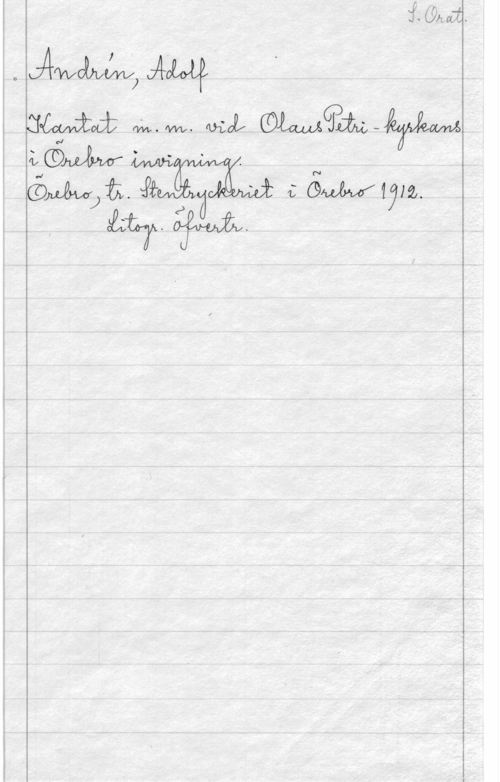 S. Orat.
Andrén, Adolf
Kantat m. m. vid Olaus Petri-kyrkans
i Örebro invigning.
Örebro, tr. Stentryckeriet i Örebro 1912.
Litogr. öfvertr.